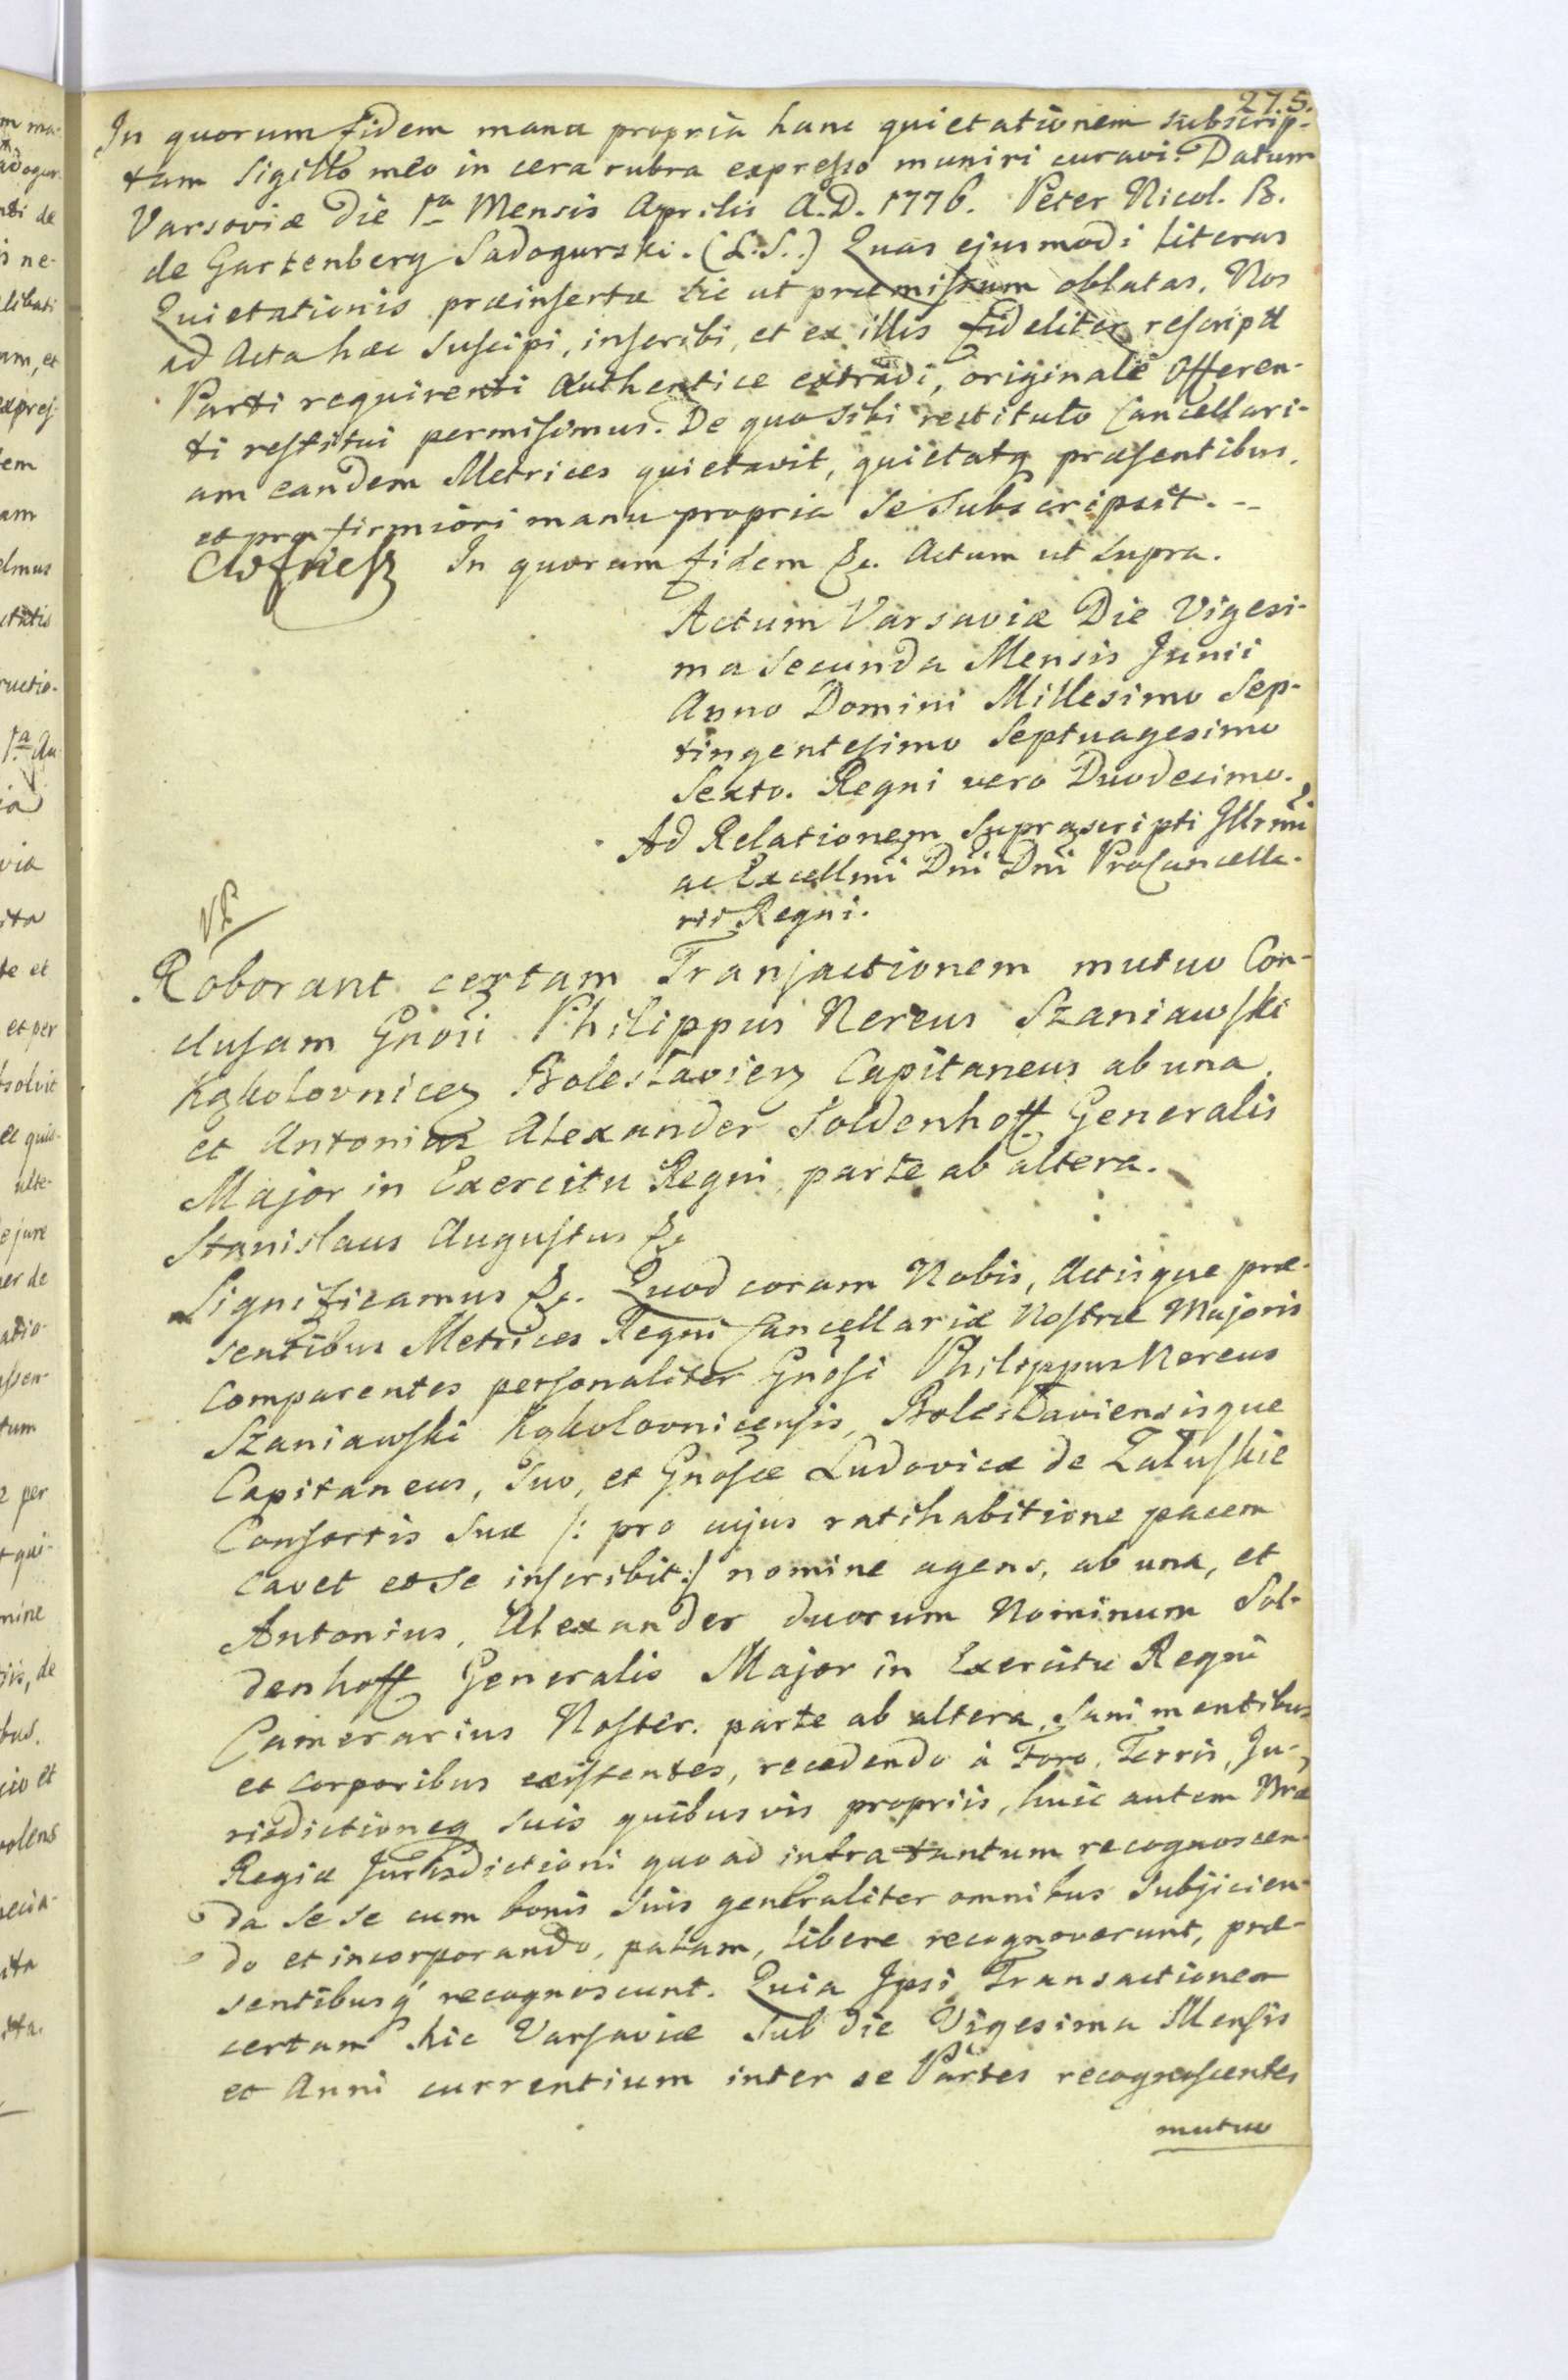 275.
In quorum fidem manu propria hanc quietationem subscrip-
tam Sigillo meo in cera rubra expresso muniri curavi. Datum
Varsoviæ Die 1a Mensis Aprilis A.D. 1776. Peter Nicol. B.
de Gartenberg Sadogurski. (L.S.) Quas ejusmodi literas
Quietationis præinsertæ sic ut præmissum oblatas, Nos
ad Acta hæc suscipi, inscribi, et ex illis fideliter rescripta
Parti requirenti Authentice extradi, originale Offeren-
ti restitui permisimus. De quo sibi restituto Cancellari-
am eandem Metrices quietavit, quietatq præsentibus,
et pro firmiori manu propria se subscripsit. --
In quorum fidem &c. Actum ut supra.
Actum Varsaviæ Die Vigesi-
ma Secunda Mensis Junii
Anno Domini Millesimo Sep-
tingentesimo Septuagesimo
Sexto. Regni vero Duodecimo.
Ad Relationem suprascripti Illrmi
ac Excellmi Dni Dni ProCancella-
rii Regni.
Roborant certam Transactionem mutuo Con-
clusam Gnosi Philippus Nereus Szaniawski
Kąkolovnicen Boleslavien Capitaneus ab una,
et Antonius Alexander Soldenhoff Generalis
Major in Exercitu Regni, parte ab altera.
Stanislaus Augustus &c
Significamus &c. Quod coram Nobis, Actisque præ-
sentibus Metrices Regni Cancellariæ Nostræ Majoris
Comparentes personaliter Gnosi Philippus Nereus
Szaniawski Kąkolovnicensis, Boleslaviensisque
Capitaneus, suo, et Gnosæ Ludovicæ de Załuskie
Consortis suæ /: pro cujus ratihabitione pacem
cavet et se inscribit :/ nomine agens, ab una, et
Antonius, Alexander duorum Nominum Sol-
denhoff Generalis Major in Exercitu Regni
Camerarius Noster. parte ab altera, sani mentibus
et corporibus existentes, recedendo à Foro, Terris, Ju-
risdictioneq suis quibusvis propriis, huic autem Nræ
Regiæ Jurisdictioni quo ad infra tantum recognoscen-
da sese cum bonis suis generaliter omnibus subjicien-
do et incorporando, palam, libere recognoverunt, præ-
sentibusq recognoscunt. Quia Ipsi Transactionem
certam hic Varsaviæ sub die Vigesima Mensis
et Anni currentium inter se Partes recognoscentes
mutuo